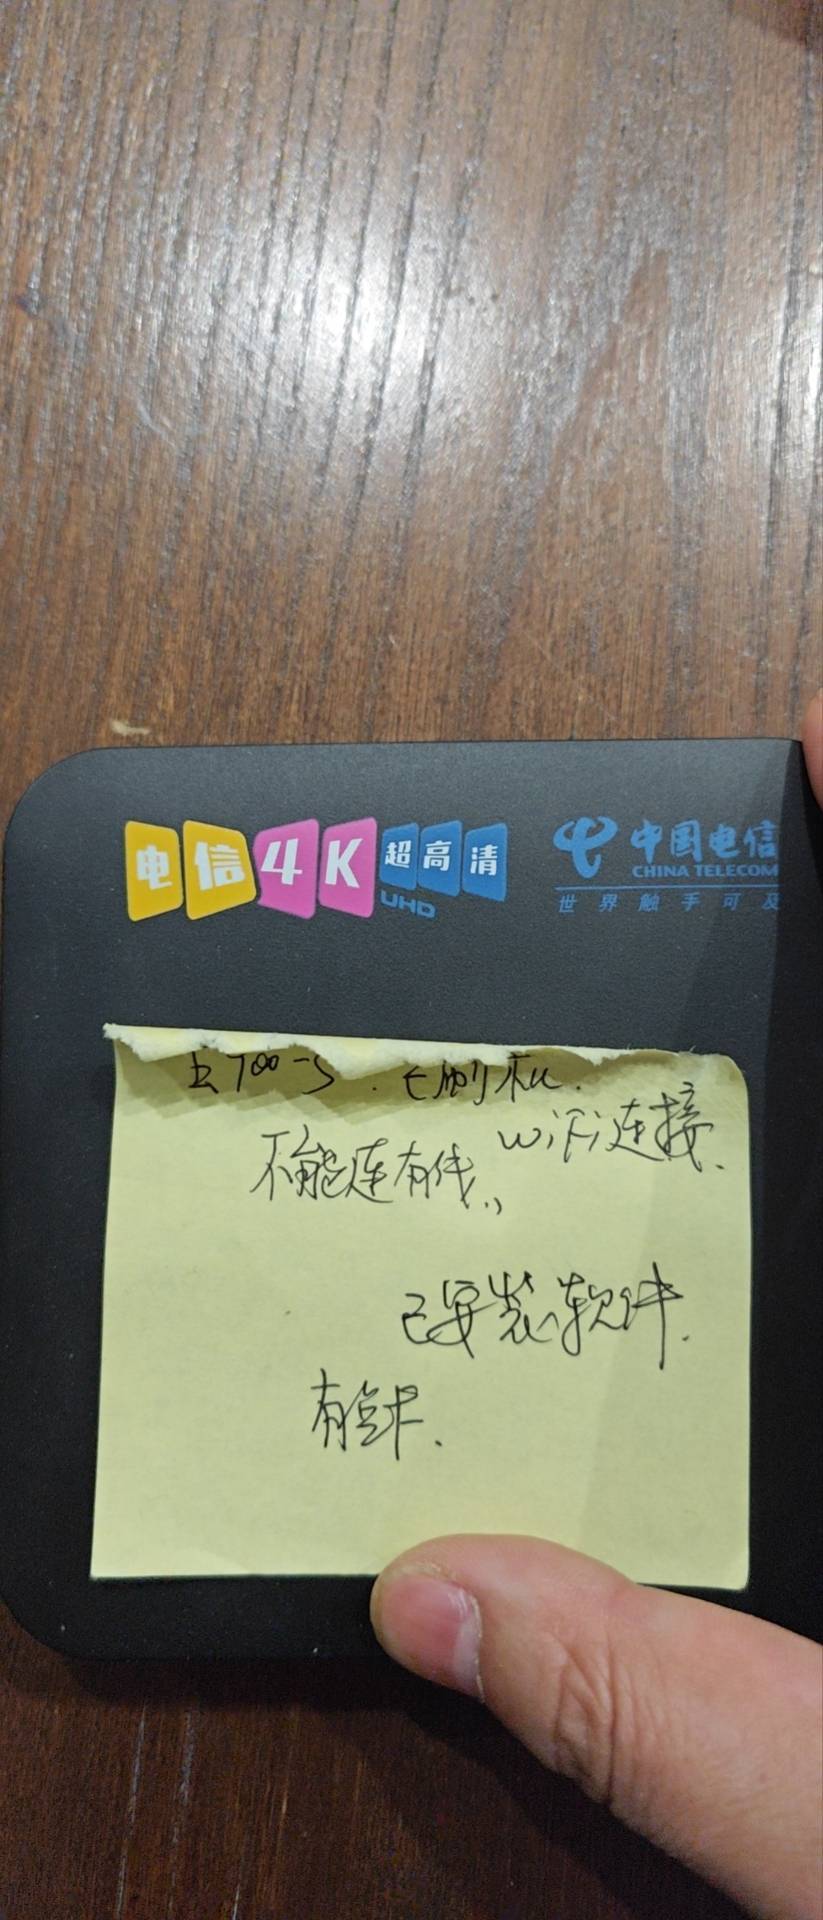 电信4K超高清
UHD
中国电信
CHINA TELECOM
世界触手可及
700-S.已刷机.
WiFi连接.
不能连有线,,
已安装软件.
有